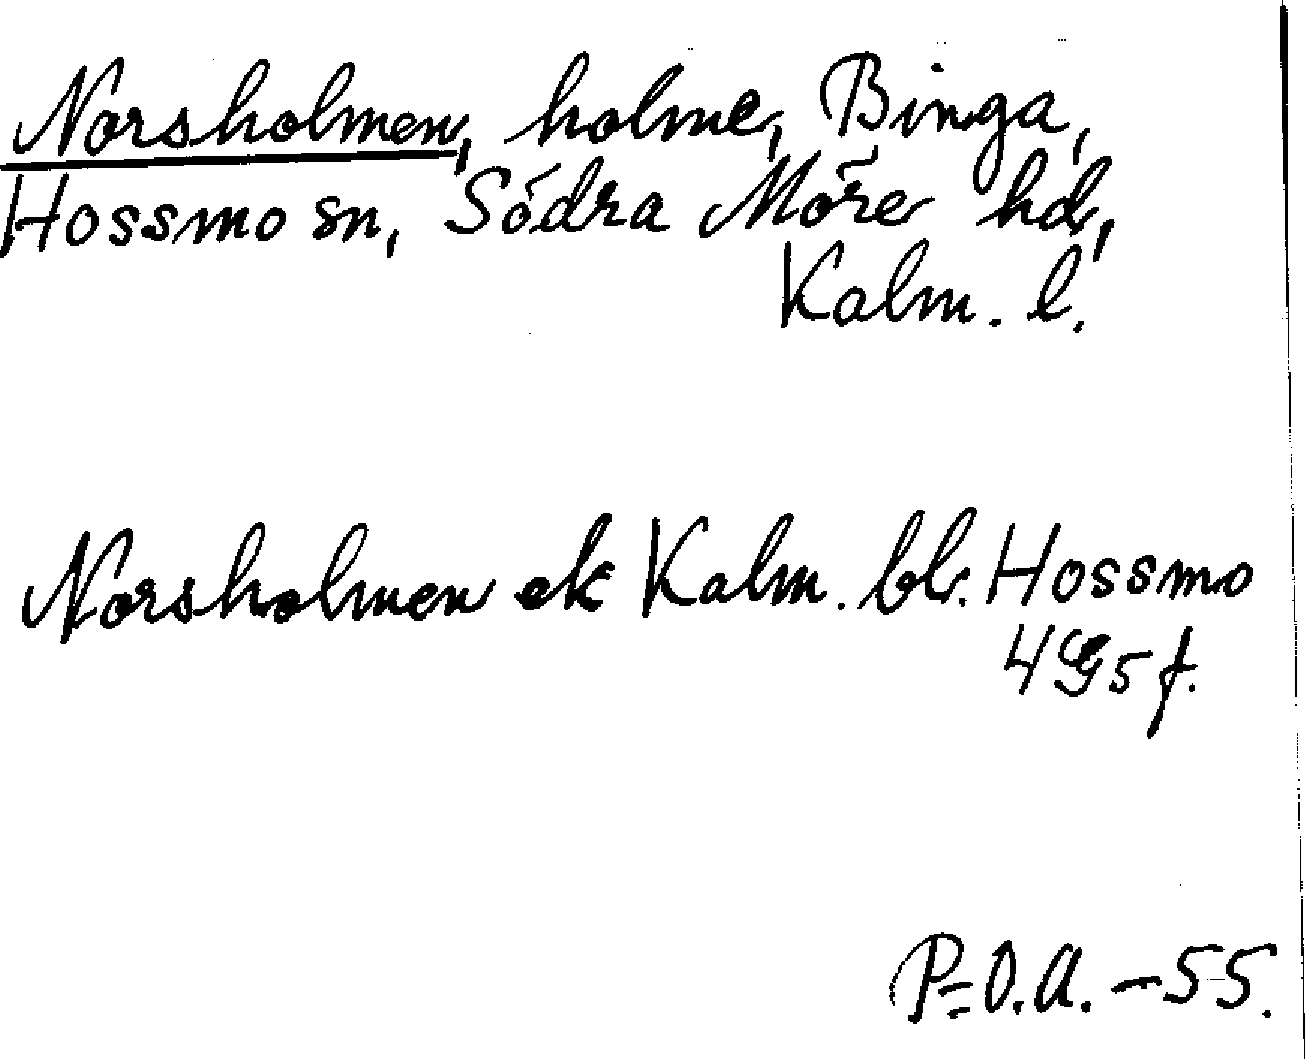 Norsholmen, holme, Binga,
Hossmo sn, Södra Möre hd,
Kalm. l.
Norsholmen ek Kalm. bl. Hossmo
4G5f.
P-O.A. -55.